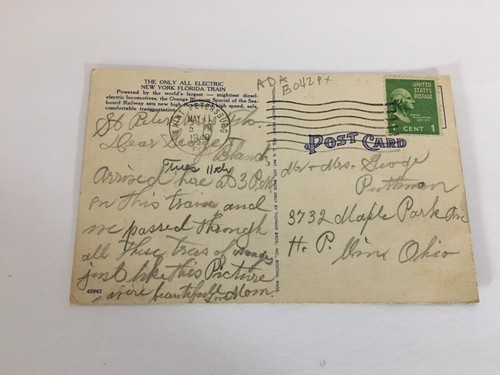 THE ONLY ALL ELECTRIC
NEW YORK FLORIDA TRAIN
Powered by the world's largest — mightiest diesel-
electric locomotives, the Orange Blossom Special of the Sea-
board Railway sets new high speed, safe,
comfortable transportation
ADA
B042PX
MAY 11
5 PM
UNITED
STATES
POSTAGE
CENT 1
POST CARD
St Peters
Dear George
Island
Tues 11th
Arrived here at 3 P.M.
on this train and
we passed through
all these trees of
just like this Picture
were beautiful Mom
Mr + Mrs. George
3732 Maple Park Ave
H. P. Ohio